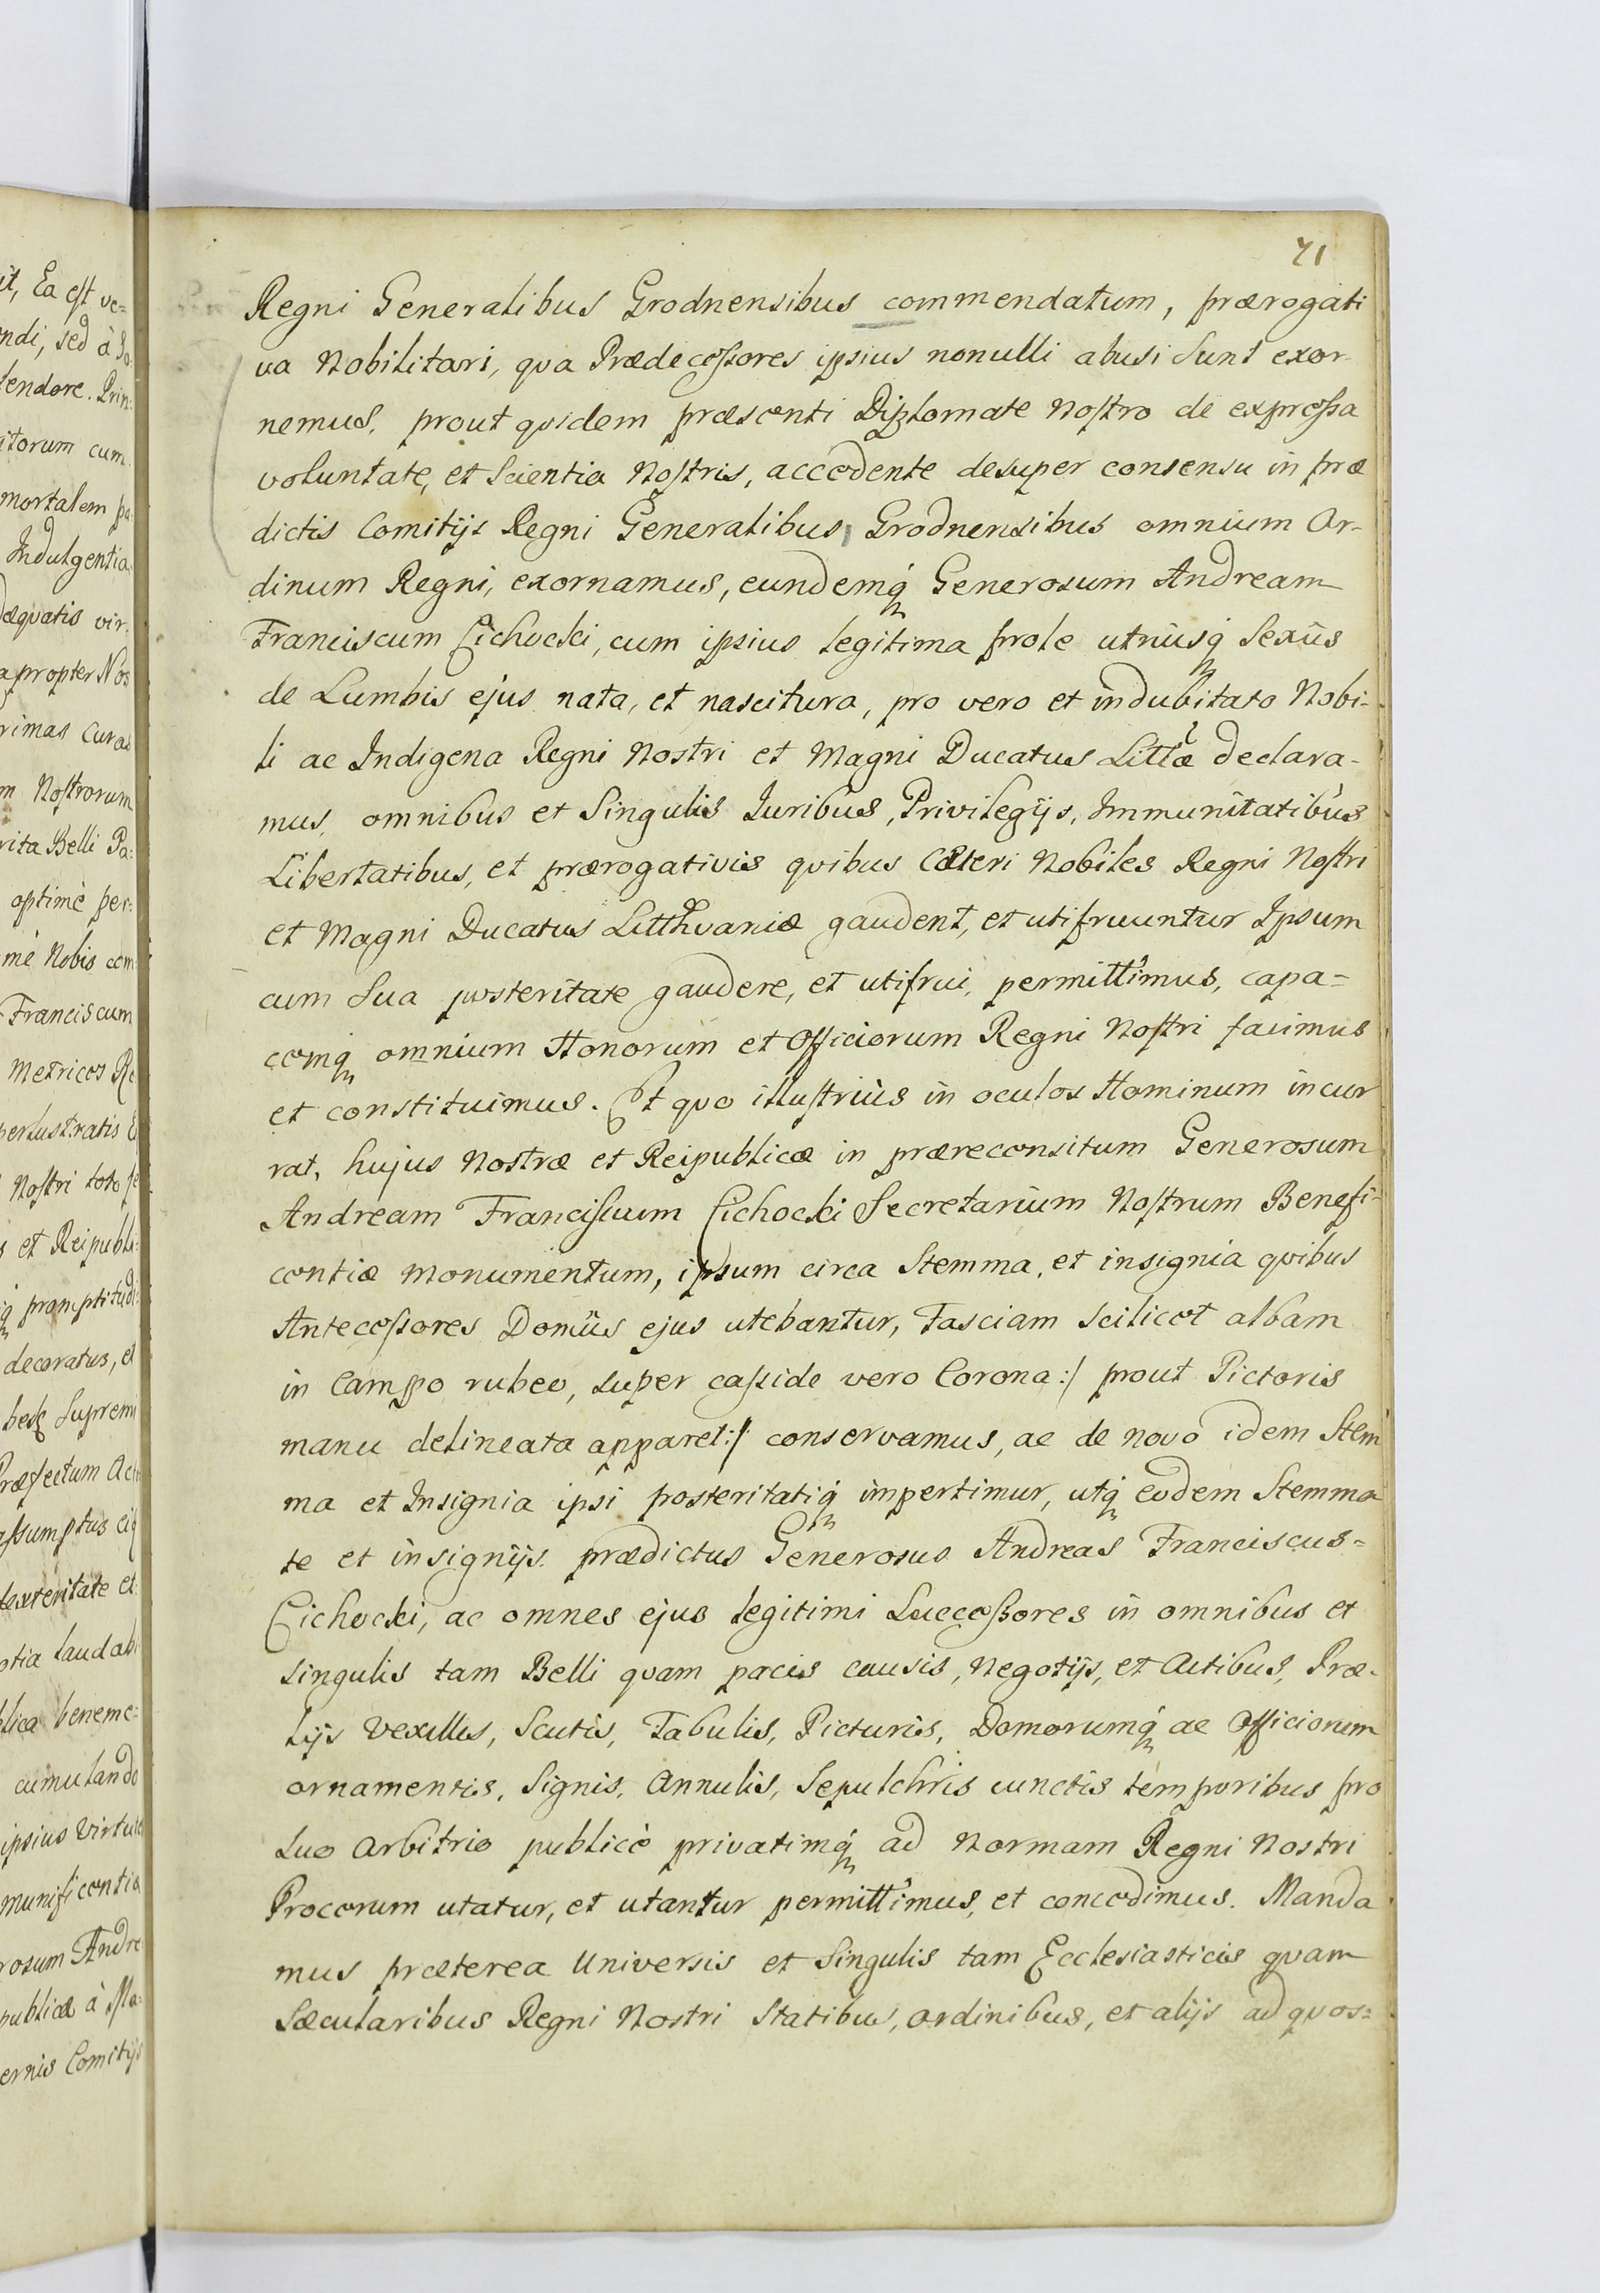 71
Regni Generalibus Grodnensibus commendatum, prærogati
va Nobilitari, qva Prædecessores ipsius nonulli abusi sunt exor
nemus, prout qvidem præsenti Diplomate Nostro de expressa
voluntate, et Scientia Nostris, accedente desuper consensu in præ
dictis Comitijs Regni Generalibus Grodnensibus omnium Or-
dinum Regni, exornamus, eundemq́ Generosum Andream
Franciscum Cichocki, cum ipsius legitima prole utriusq́ Sexûs
de Lumbis ejus nata, et nascitura, pro vero et indubitato Nobi-
li ac Indigena Regni Nostri et Magni Ducatus Littæ declara-
mus, omnibus et Singulis Juribus, Privilegijs, Immunitatibus
Libertatibus, et prærogativis qvibus Cæteri Nobiles Regni Nostri
et Magni Ducatus Litthvaniæ gaudent, et utifruuntur Ipsum
cum Sua posteritate gaudere, et utifrui, permittimus, capa=
cemq́ omnium Honorum et Officiorum Regni Nostri facimus
et constituimus. Et quo illustriùs in oculos Hominum incur
rat, hujus Nostræ et Reipublicæ in prærecensitum Generosum
Andream Franciscum Cichocki Secretarium Nostrum Benefi-
centiæ monumentum, ipsum circa Stemma, et insignia qvibus
Antecessores Domûs ejus utebantur, Fasciam scilicet albam
in Campo rubeo, super casside vero Corona :/ prout Pictoris
manu delineata apparet :/ conservamus, ac de novo idem Stem
ma et Insignia ipsi posteritatiq́ impertimur, utq́ eodem Stemma
te et insignijs prædictus Generosus Andreas Franciscus=
Cichocki, ac omnes ejus legitimi Successores in omnibus et
singulis tam Belli qvam pacis causis, Negotijs, et Actibus, Præ-
lijs Vexillis, Scutis, Tabulis, Picturis, Domorumq́ ac Officiorum
ornamentis, Signis, Annulis, Sepulchris cunctis temporibus pro
suo Arbitrio publicè privatimq́ ad Normam Regni Nostri
Procerum utatur, et utantur permittimus, et concedimus. Manda
mus præterea Universis et Singulis tam Ecclesiasticis qvam
Sæcularibus Regni Nostri Statibus, ordinibus, et alijs ad qvos=
it, Ea est ve=
endi, sed à
tendore. Prin:
itorum cum
mortalem
Indulgentia
dæqvatis vir.
apropter Nos
rimas Curas
m Nostrorum
rita Belli Pa:
optimè per:
mè Nobis com
Franciscum
Metrices
perlustratis
Nostri toto
et Reipubli:
promptitudi
decoratus, et
Supremi
Præfectum
assumptus
dexteritate et
laudab
blica beneme:
cumulando
ipsius Virtute
munificentia
rosum Andre
publicæ à
ernis Comitijs